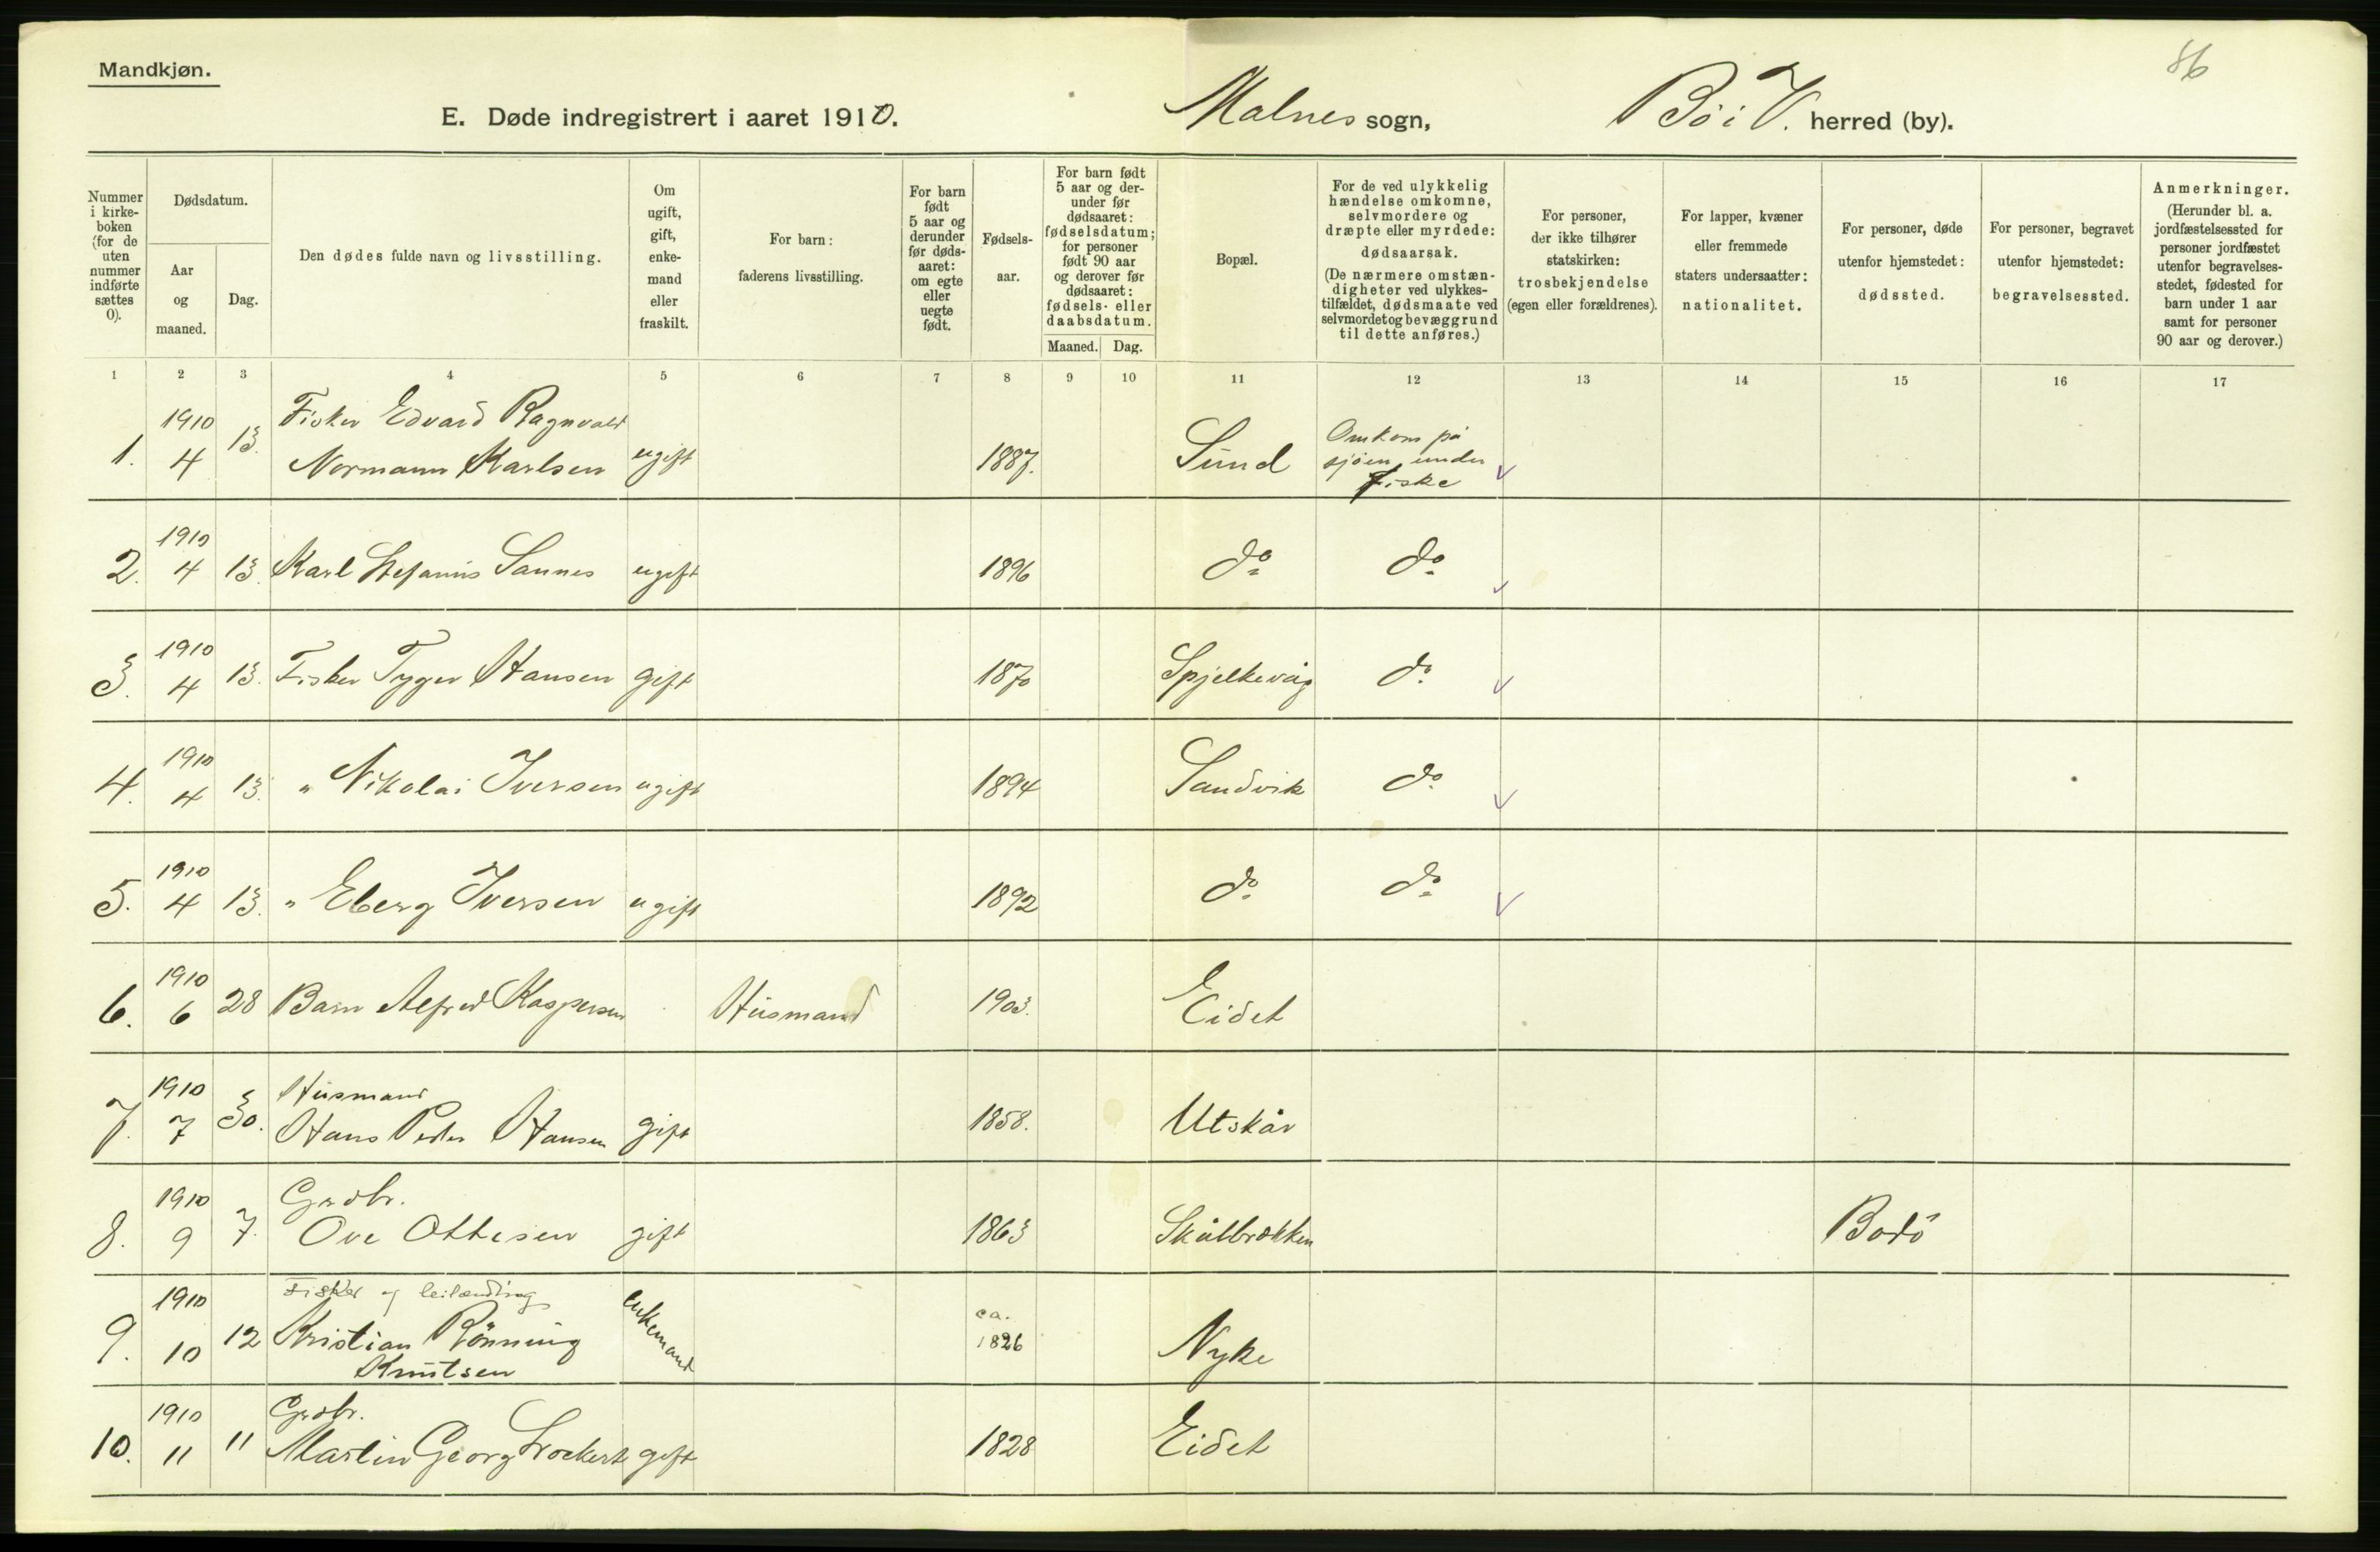 86
Mandkjøn.
E. Døde indregistrert i aaret 1910. Malnes sogn, Bö i V. herred (by).
Nummer i kirke-boken (for de uten nummer indførte sættes 0).
Dødsdatum.
Aar og maaned.
Dag.
Den dødes fulde navn og livsstilling.
Om ugift, gift, enke-mand eller fraskilt.
For barn: faderens livsstilling.
For barn født 5 aar og derunder før døds-aaret: om egte eller uegte født.
Fødsels-aar.
For barn født 5 aar og der-under før dødsaaret: fødselsdatum; for personer født 90 aar og derover før dødsaaret: fødsels- eller daabsdatum.
Maaned. Dag.
Bopæl.
For de ved ulykkelig hændelse omkomne, selvmordere og dræpte eller myrdede: dødsaarsak. (De nærmere omstæn-digheter ved ulykkes-tilfældet, dødsmaate ved selvmordet og bevæggrund til dette anføres.)
For personer, der ikke tilhører statskirken: trosbekjendelse (egen eller forældrenes).
For lapper, kvæner eller fremmede staters undersaatter: nationalitet.
For personer, døde utenfor hjemstedet: dødssted.
For personer, begravet utenfor hjemstedet: begravelsessted.
Anmerkninger. (Herunder bl. a. jordfæstelsessted for personer jordfæstet utenfor begravelses-stedet, fødested for barn under 1 aar samt for personer 90 aar og derover.)
1 2 3 4 5 6 7 8 9 10 11 12 13 14 15 16 17
1. 1910 4 13. Fisker Edvard Ragnvald Normann Karlsen ugift 1887. Sund Omkom på sjöen under Fiske
2. 1910 4 13. Karl Stefanus Sannes ugift 1896 do do
3. 1910 4 13. Fisker Tyger Hansen gift 1870 Spjelkevåg do
4. 1910 4 13. " Nikolai Iversen ugift 1894 Sandvik do
5. 1910 4 13. " Eberg Iversen ugift 1892 do do
6. 1910 6 28 Barn Alfred Kaspersen Husmand 1903. Eidet
7. 1910 7 30. Husmand Hans Peder Hansen gift 1858. Utskår
8. 1910 9 7. Grdbr. Ove Ottesen gift 1863 Skålbrækken Bodö
9. 1910 10 12 Fisker og leilænding Kristian Rönning Knutsen enkemand ca. 1826 Nyke
10. 1910 11 11 Grdbr. Martin Georg Lockert gift 1828 Eidet